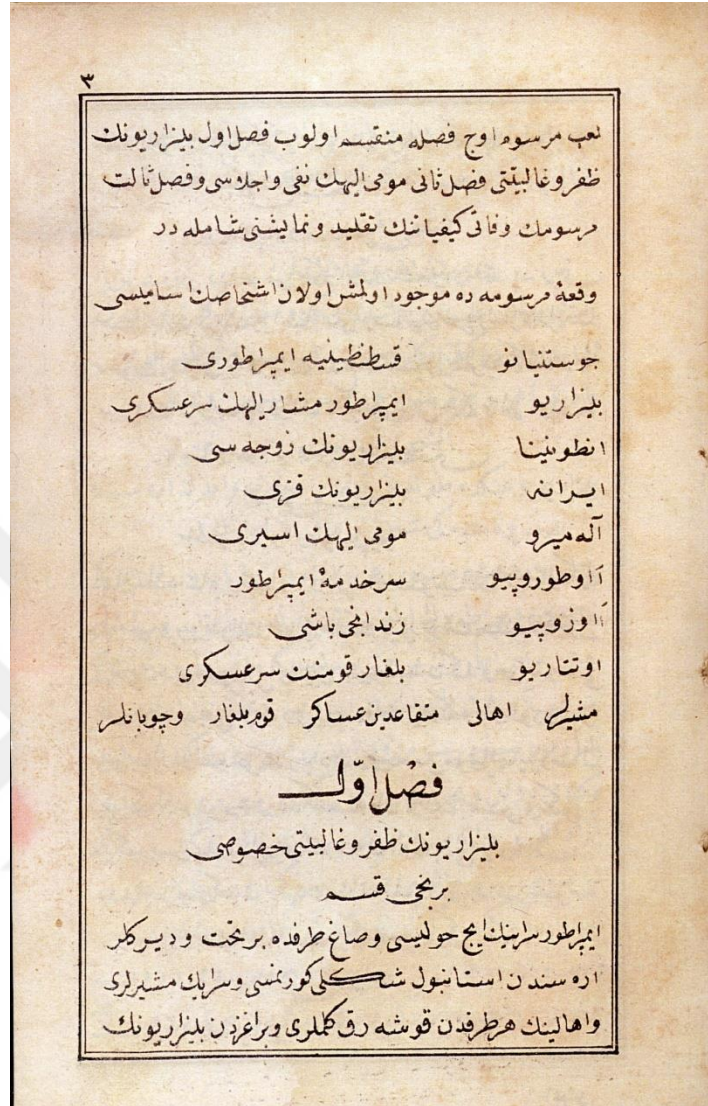 ٣
لعب مرسوم اوچ فصله منقسم اولوب فصل اول بليزاريونك
ظفر و غالبيتى فصل ثانى مومى اليهك نفى و اجلاسى و فصل ثالث
مرسومك وفاتى كيفياتنك تقليد و نمايشنى شامله در
وقعهٔ مرسومه ده موجود اولمش اولان اشخاصك اساميسى
جوستنيانو قسطنطينيه ايمپراطورى
بليزاريو ايمپراطور مشار اليهك سرعسكرى
انطونينا بليزاريونك زوجه سى
ايرانه بليزاريونك قزى
آله ميرو مومى اليهك اسيرى
آاوطوروپيو سر خدمهٔ ايمپراطور
آاوزوپيو زندانجى باشى
اوتتاريو بلغار قومنك سرعسكرى
مشيرلر اهالى متقاعدين عساكر قوم بلغار و چوبانلر
فصل اوّل
بليزاريونك ظفر و غالبيتى خصوصى
برنجى قسم
ايمپراطور سراينك ايچ حوليسى و صاغ طرفده بر تخت و ديركلر
اره سندن استانبول شكلى كورنمسى و سرايك مشيرلرى
و اهالينك هر طرفدن قوشه رق كلملرى و براغزدن بليزاريونك